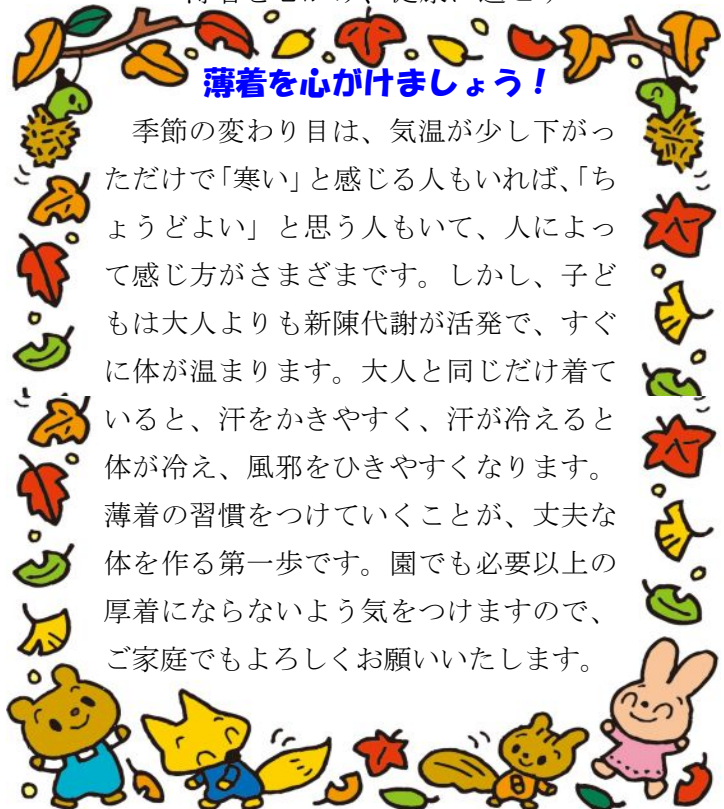 薄着を心がけましょう！
季節の変わり目は、気温が少し下がっ
ただけで「寒い」と感じる人もいれば、「ち
ょうどよい」と思う人もいて、人によっ
て感じ方がさまざまです。しかし、子ど
もは大人よりも新陳代謝が活発で、すぐ
に体が温まります。大人と同じだけ着て
いると、汗をかきやすく、汗が冷えると
体が冷え、風邪をひきやすくなります。
薄着の習慣をつけていくことが、丈夫な
体を作る第一歩です。園でも必要以上の
厚着にならないよう気をつけますので、
ご家庭でもよろしくお願いいたします。